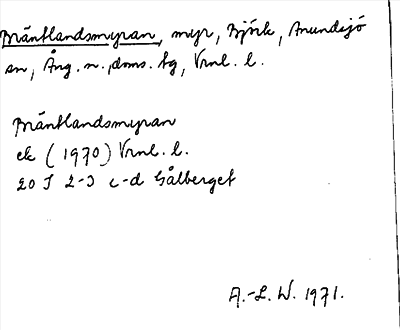 Bräntlandsmyran, myr, Björk, Anundsjö
sn, Ång. n., dms. tg, Vrnl. l.
Bräntlandsmyran
ek (1970) Vrnl. l.
20 J 2-3 c-d Gålberget
A.-L. W. 1971.